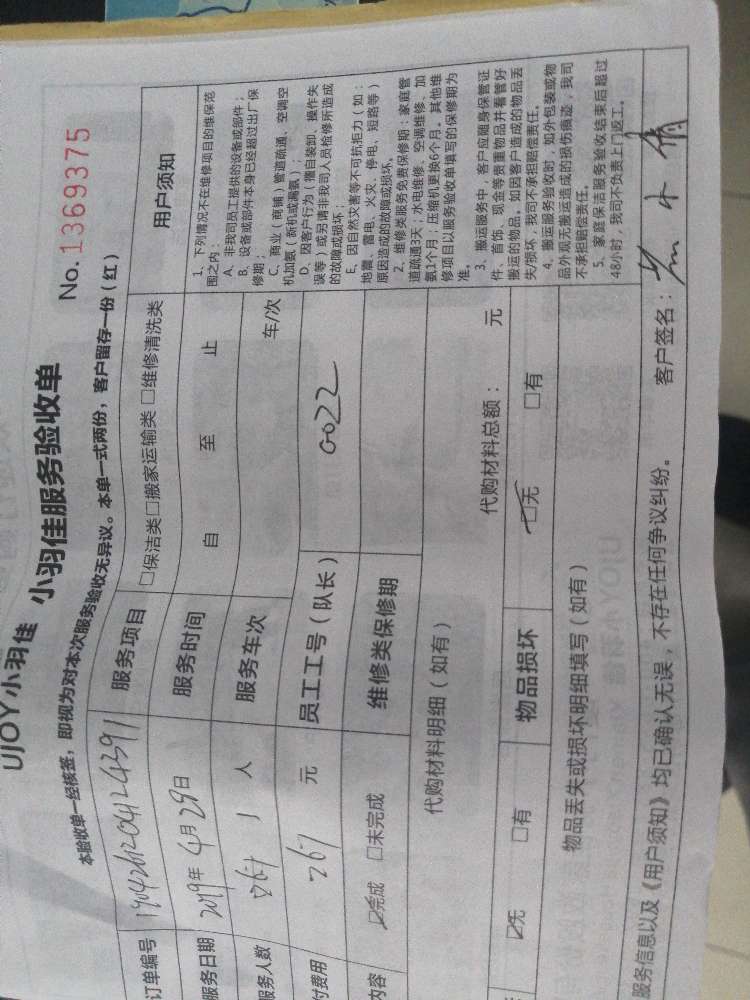 UJOY小羽佳 小羽佳服务验收单
No.1369375
本验收单一经核签，即视为对本次服务验收无异议。本单一式两份，客户留存一份（红）
订单编号 服务项目 □保洁类□搬家运输类 □维修清洗类
服务日期 2019年4月29日 服务时间 自 至 止
服务人数 1 人 服务车次 车/次
付费用 267 元 员工工号（队长） 0022
内容 ☑完成 □未完成 维修类保修期
代购材料明细（如有） 代购材料总额： 元
☑无 □有 物品损坏 ☑无 □有
物品丢失或损坏明细填写（如有）
用户须知
1、下列情况不在维修项目的维保范
围之内：
A、非我司员工提供的设备或部件；
B、设备或部件本身已经超过出厂保
修期；
C、商业（商铺）管道疏通、空调空
机加氨（新机或漏氨）；
D、因客户行为（擅自装卸、操作失
误等）或另请非我司人员检修所造成
的故障或损坏；
E、因自然灾害等不可抗拒力（如：
地震、雷电、火灾、停电、短路等）
原因造成的故障或损坏。
2、维修类服务免费保修期：家庭管
道疏通3天；水电维修、空调维修、加
氨1个月；压缩机更换6个月。其他维
修项目以服务验收单填写的保修期为
准。
3、搬运服务中，客户应随身保管证
件、首饰、现金等贵重物品并看管好
搬运的物品，如因客户造成的物品丢
失/损坏，我司不承担赔偿责任。
4、搬运服务验收时，如外包装或物
品外观无搬运造成的损伤痕迹，我司
不承担赔偿责任。
5、家庭保洁服务验收结束后超过
48小时，我司不负责上门返工。
服务信息以及《用户须知》均已确认无误，不存在任何争议纠纷。 客户签名：